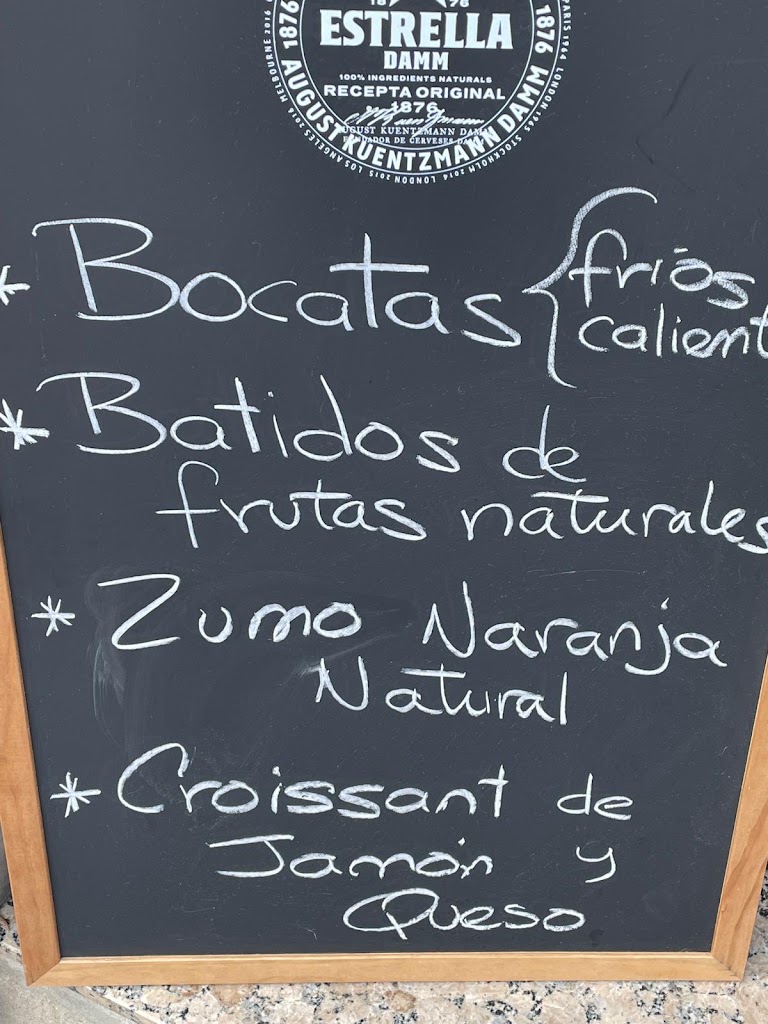 18 76
ESTRELLA
DAMM
100% INGREDIENTS NATURALS
RECEPTA ORIGINAL
1876
AUGUST KUENTZMANN DAMM
FUNDADOR DE CERVESES DAMM
1876 AUGUST KUENTZMANN DAMM 1876
MELBOURNE 2016 LOS ANGELES 2015 LONDON 2014 STOCKHOLM 2004 LONDON 1965 PARIS 1964
* Bocatas { fríos
calient
* Batidos de
frutas naturales
* Zumo Naranja
Natural
* Croissant de
Jamón y
Queso